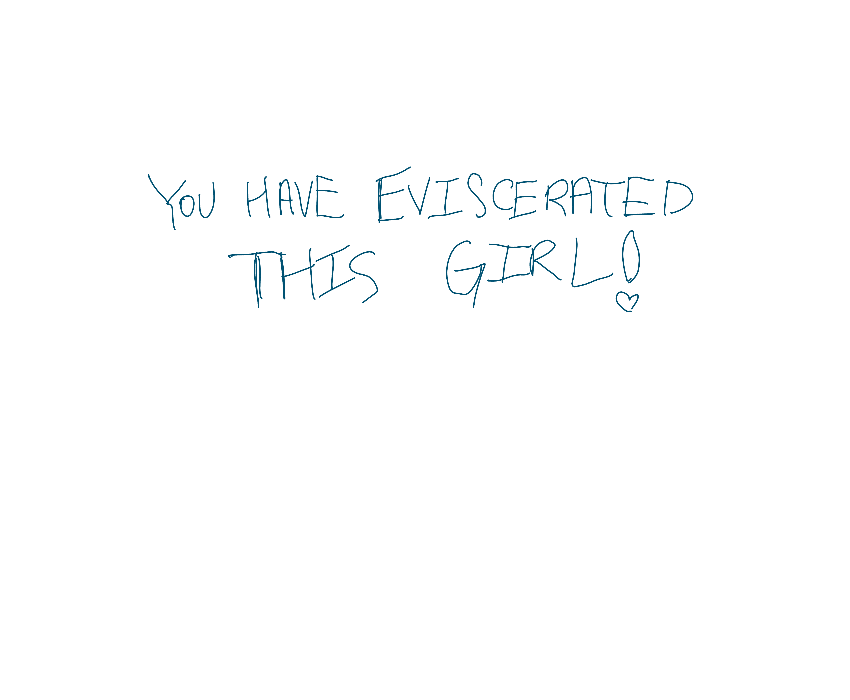 YOU HAVE EVISCERATED
THIS GIRL!